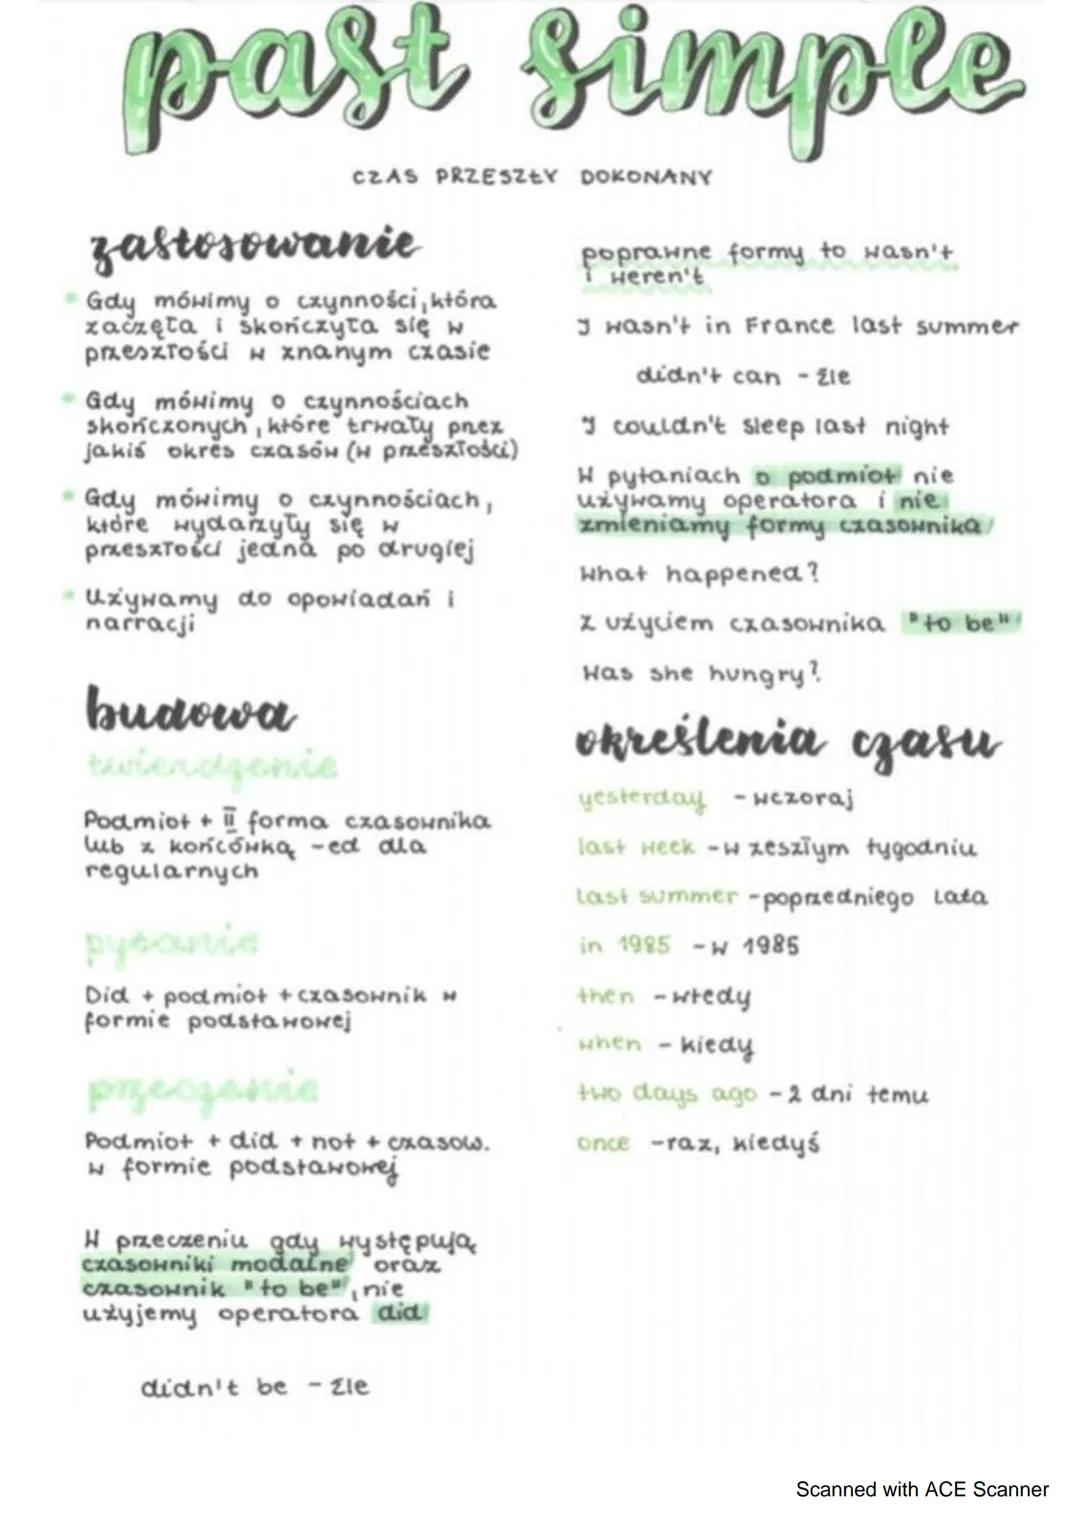 past simple
CZAS PRZESZŁY DOKONANY
zastosowanie
Gdy mówimy o czynności, która
zaczęła i skończyła się w
przeszłości w znanym czasie
Gdy mówimy o czynnościach
skończonych, które trwały przez
jakiś okres czasów (w przeszłości)
Gdy mówimy o czynnościach,
które wydarzyły się w
przeszłości jedna po drugiej
Używamy do opowiadań i
narracji
budowa
twierdzenie
Podmiot + II forma czasownika
lub z końcówką -ed dla
regularnych
pytanie
Did + podmiot + czasownik w
formie podstawowej
przeczenie
Podmiot + did + not + czasow.
w formie podstawowej
W przeczeniu gdy występują
czasowniki modalne oraz
czasownik "to be", nie
użyjemy operatora did
didn't be - źle
poprawne formy to wasn't
i weren't
I wasn't in France last summer
didn't can - źle
I couldn't sleep last night
W pytaniach o podmiot nie
używamy operatora i nie
zmieniamy formy czasownika
What happened?
Z użyciem czasownika "to be"
Was she hungry?
określenia czasu
yesterday - wczoraj
last week - w zeszłym tygodniu
last summer - poprzedniego lata
in 1985 - w 1985
then - wtedy
when - kiedy
two days ago - 2 dni temu
once - raz, kiedyś
Scanned with ACE Scanner